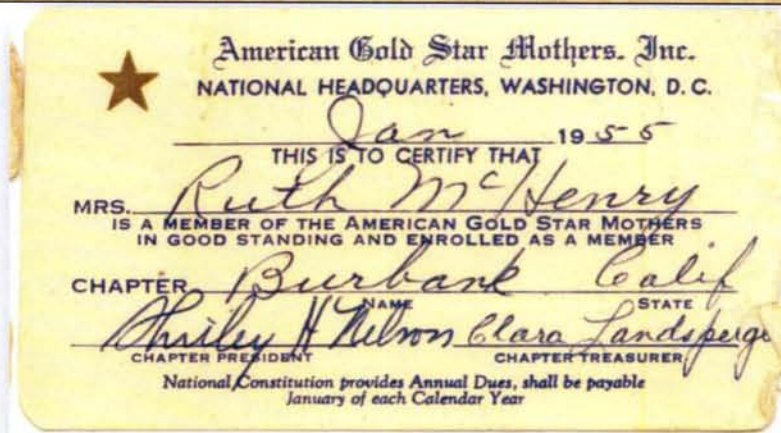 American Gold Star Mothers. Inc.
NATIONAL HEADQUARTERS, WASHINGTON, D.C.
Jan 1955
THIS IS TO CERTIFY THAT
MRS. Ruth McHenry
IS A MEMBER OF THE AMERICAN GOLD STAR MOTHERS
IN GOOD STANDING AND ENROLLED AS A MEMBER
CHAPTER Burbank Calif
NAME STATE
Shriley H Nelson Clara Landsperge
CHAPTER PRESIDENT CHAPTER TREASURER
National Constitution provides Annual Dues, shall be payable
January of each Calendar Year